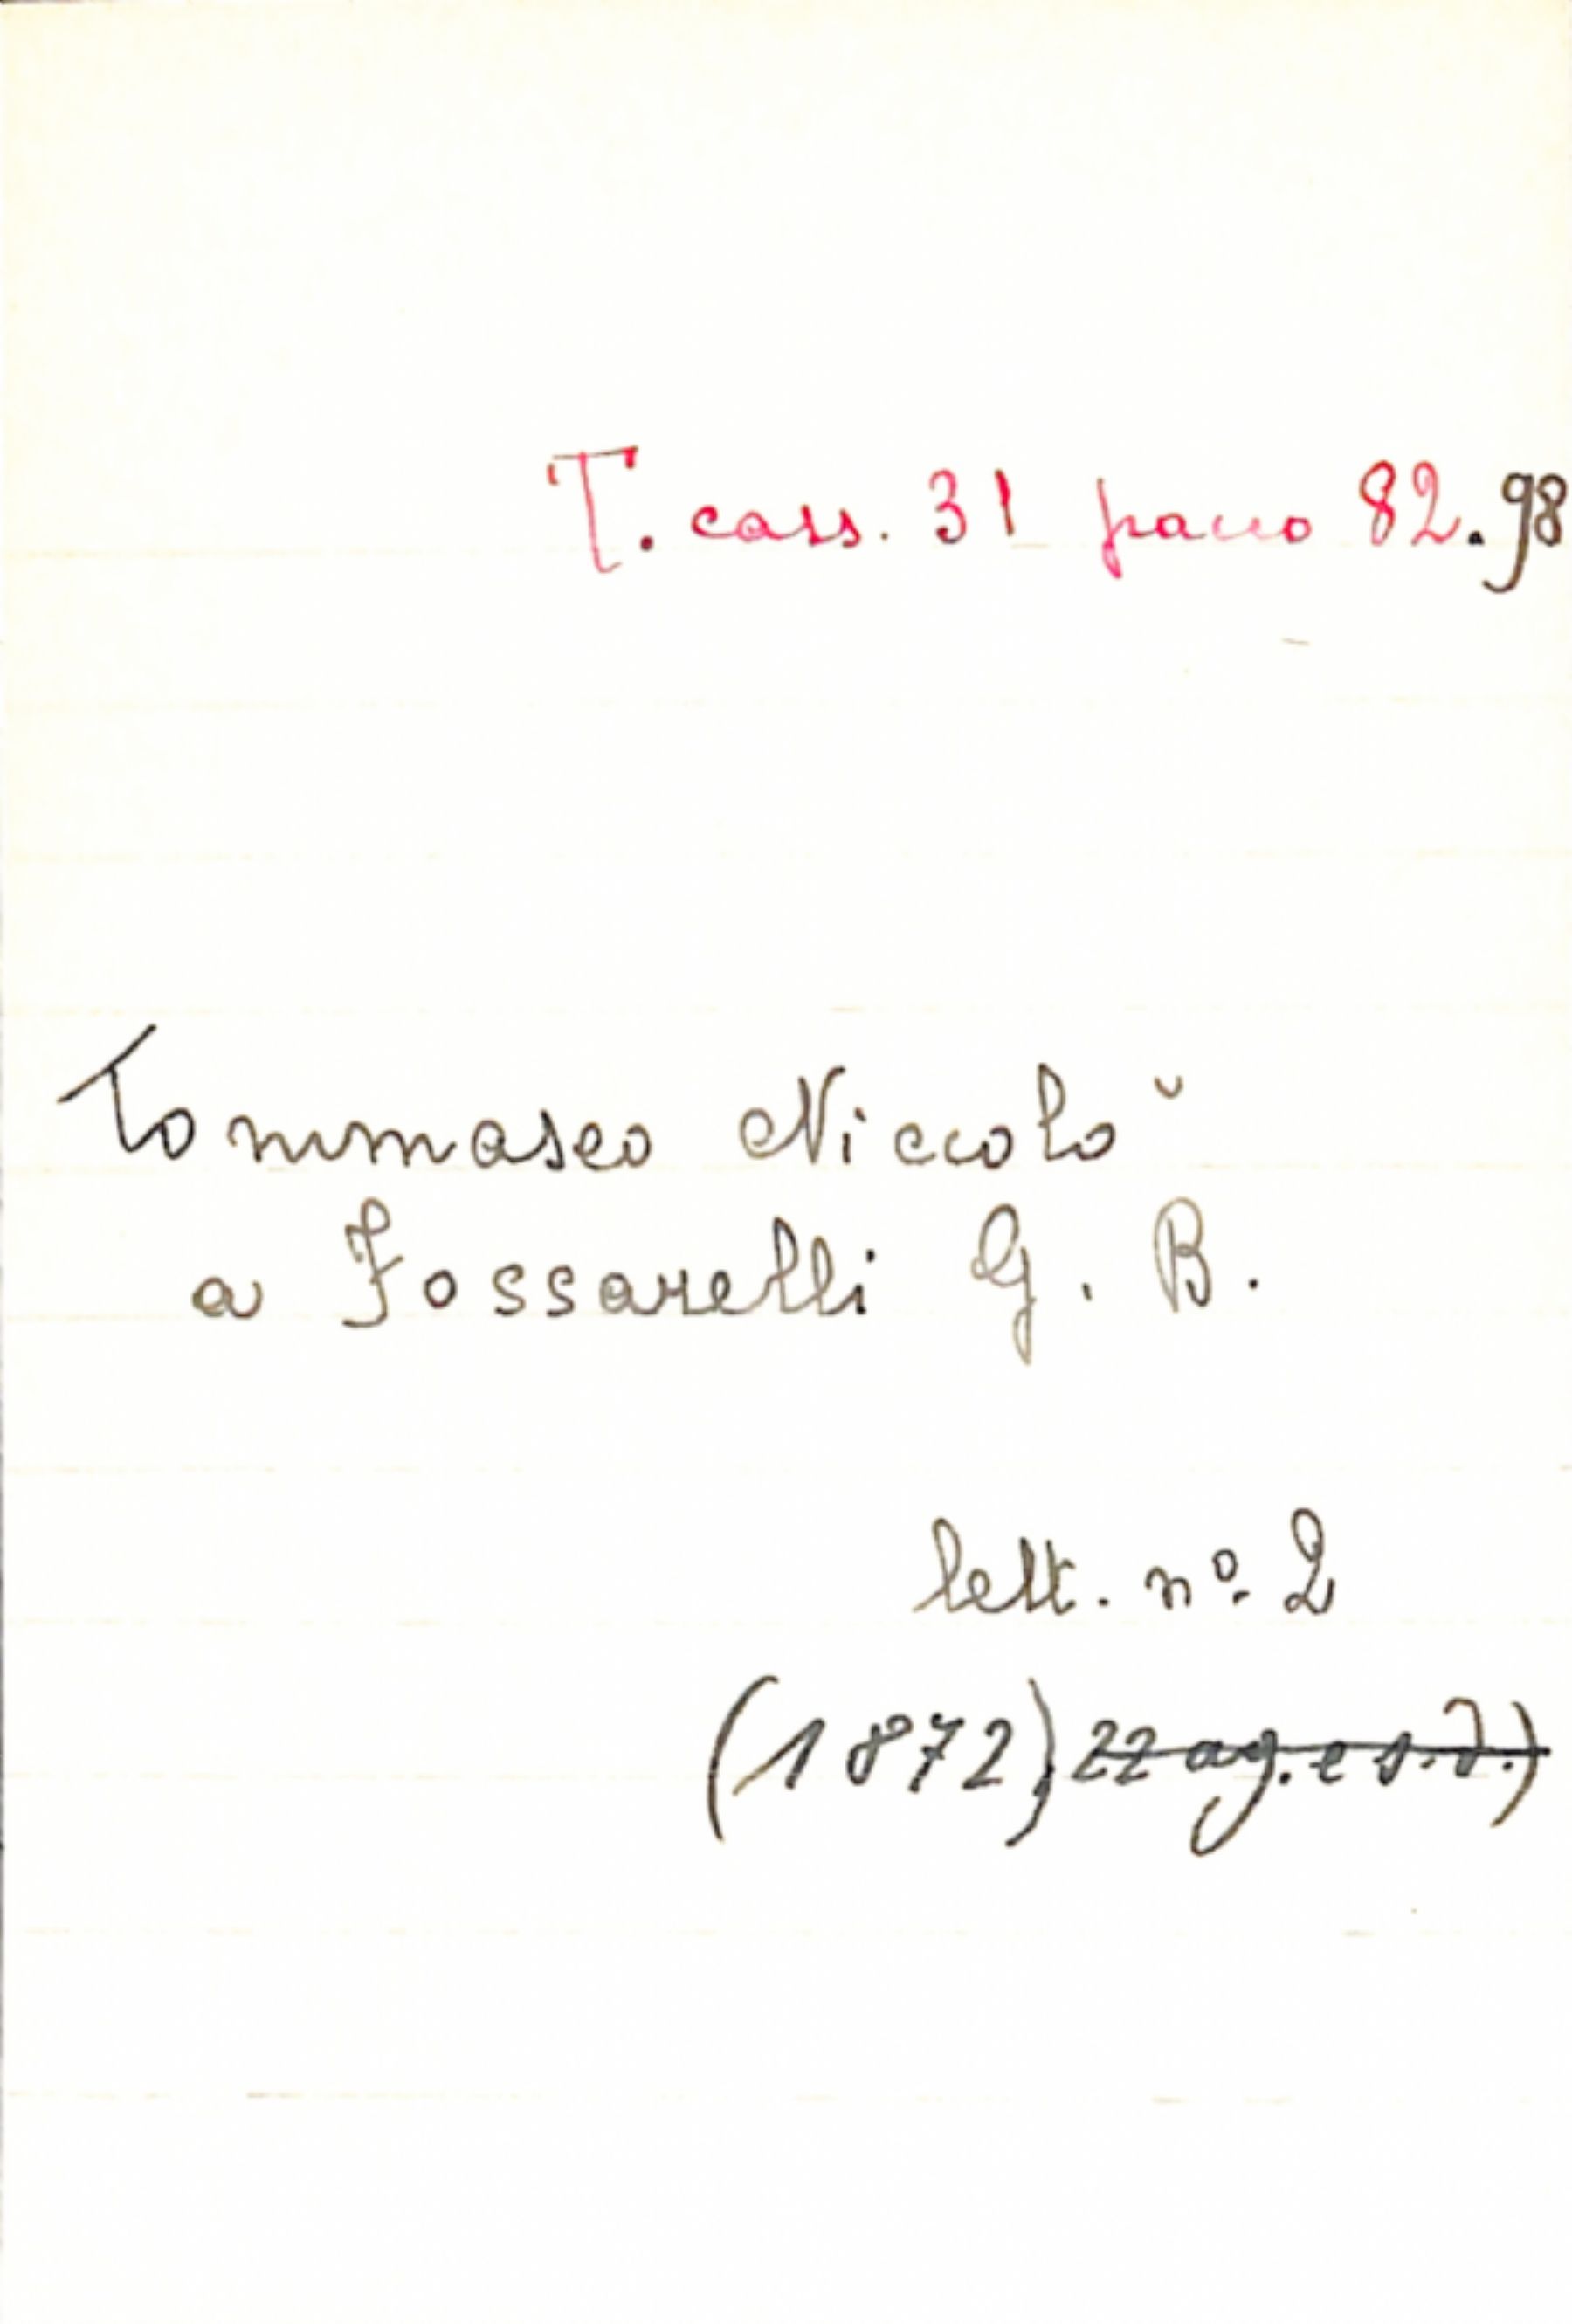 T. cass. 31 pacco 82.98
Tommaseo Niccolò
a Fossarelli G. B.
lett. nº 2
(1872) 22 ag. e s.d.)